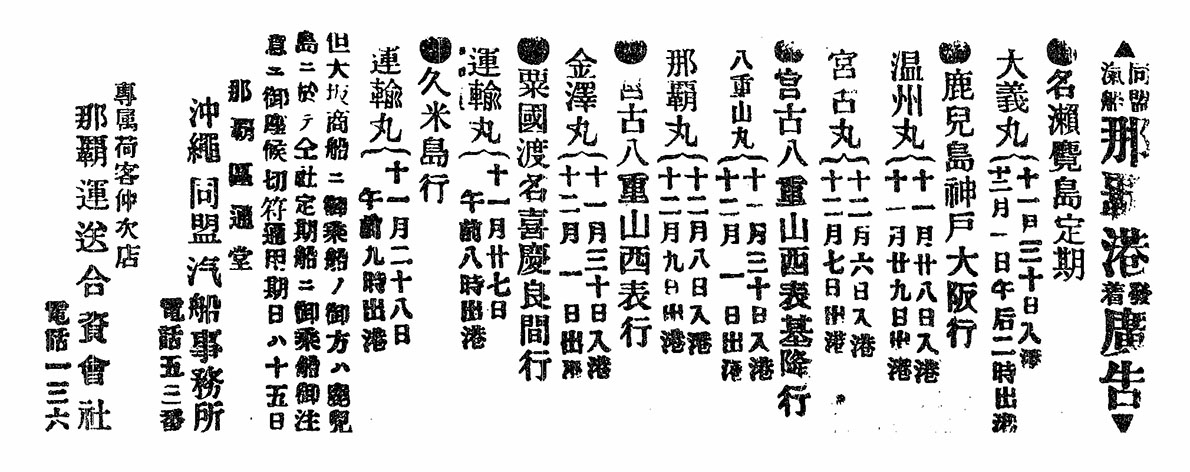 ▲同盟汽船那覇港發着廣告▼
●名瀨鹿島定期
大義丸{十一月三十日入港
十二月一日午后二時出港
●鹿兒島神戸大阪行
温州丸{十一月廿八日入港
十一月廿九日出港
宮古丸{十二月六日入港
十二月七日出港
●宮古八重山西表基隆行
八重山丸{十一月三十日入港
十二月一日出港
那覇丸{十二月八日入港
十二月九日出港
●宮古八重山西表行
金澤丸{十一月三十日入港
十二月一日出港
●粟國渡名喜慶良間行
運輸丸{十一月廿七日
午前八時出港
●久米島行
運輸丸{十一月二十八日
午前九時出港
但大坂商船ニ御乘船ノ御方ハ鹿兒
島ニ於テ仝社定期船ニ御乘船御注
意ニ御座候切符通用期日ハ十五日
那覇區通堂
沖繩同盟汽船事務所
電話五二番
專属荷客仲次店
那覇運送合資會社
電話一三六